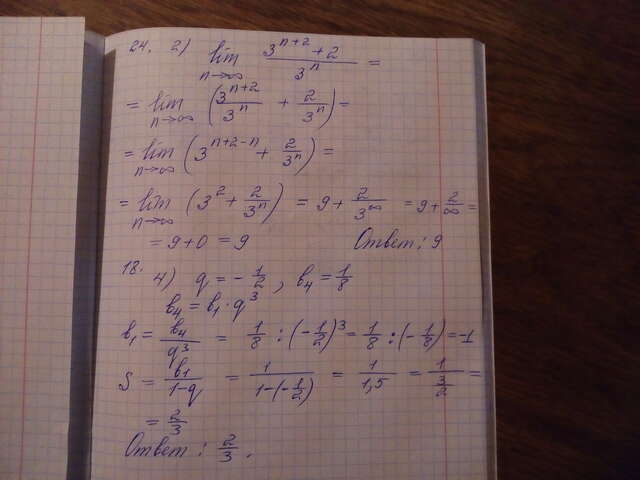 24. 2) lim n→∞ (3^(n+2) + 2)/3^n =
= lim n→∞ (3^(n+2)/3^n + 2/3^n) =
= lim n→∞ (3^(n+2-n) + 2/3^n) =
= lim n→∞ (3^2 + 2/3^n) = 9 + 2/3^∞ = 9 + 2/∞ =
= 9 + 0 = 9 Ответ: 9
18. 4) q = -1/2, b4 = 1/8
b4 = b1 · q^3
b1 = b4/q^3 = 1/8 : (-1/2)^3 = 1/8 : (-1/8) = -1
S = b1/(1-q) = 1/(1-(-1/2)) = 1/1,5 = 1/(3/2) =
= 2/3
Ответ: 2/3.